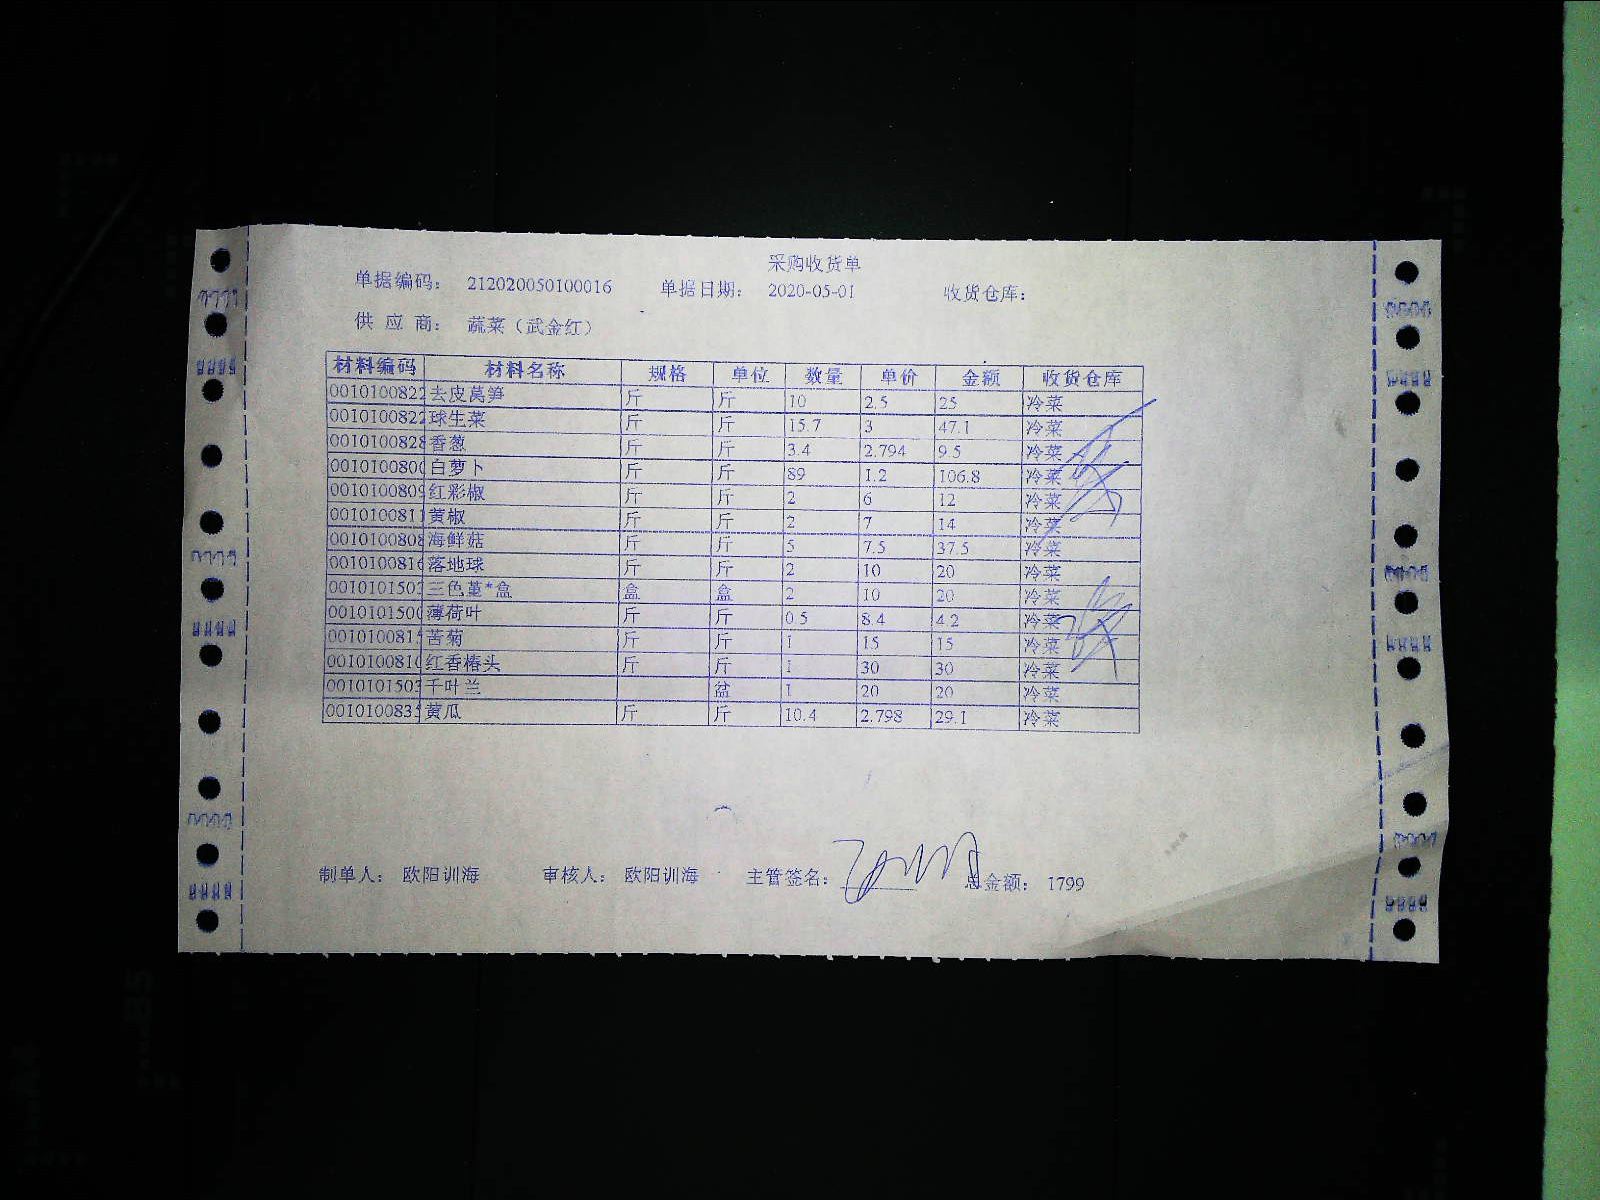 采购收货单
单据编码： 212020050100016 单据日期： 2020-05-01 收货仓库：
供 应 商： 蔬菜（武金红）
材料编码 材料名称 规格 单位 数量 单价 金额 收货仓库
0010100822 去皮莴笋 斤 斤 10 2.5 25 冷菜
0010100822 球生菜 斤 斤 15.7 3 47.1 冷菜
0010100828 香葱 斤 斤 3.4 2.794 9.5 冷菜
0010100800 白萝卜 斤 斤 89 1.2 106.8 冷菜
0010100809 红彩椒 斤 斤 2 6 12 冷菜
0010100811 黄椒 斤 斤 2 7 14 冷菜
0010100808 海鲜菇 斤 斤 5 7.5 37.5 冷菜
0010100816 落地球 斤 斤 2 10 20 冷菜
001010150 三色堇*盒 盒 盒 2 10 20 冷菜
0010101500 薄荷叶 斤 斤 0.5 8.4 4.2 冷菜
001010081 苦菊 斤 斤 1 15 15 冷菜
0010100810 红香椿头 斤 斤 1 30 30 冷菜
0010101503 千叶兰 盆 1 20 20 冷菜
001010083 黄瓜 斤 斤 10.4 2.798 29.1 冷菜
制单人： 欧阳训海 审核人： 欧阳训海 主管签名： 总金额： 1799